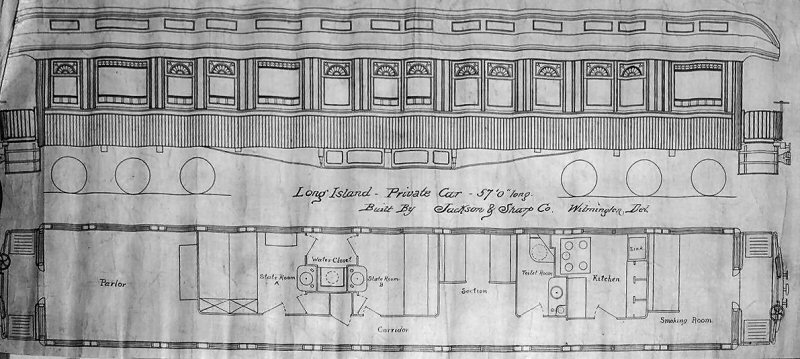 Long Island - Private Car - 57'0" long.
Built By Jackson & Sharp Co. Wilmington, Del.
Parlor
State Room
A
Water Closet
State Room
B
Corridor
Section
Toilet Room
Kitchen
Sink
Smoking Room